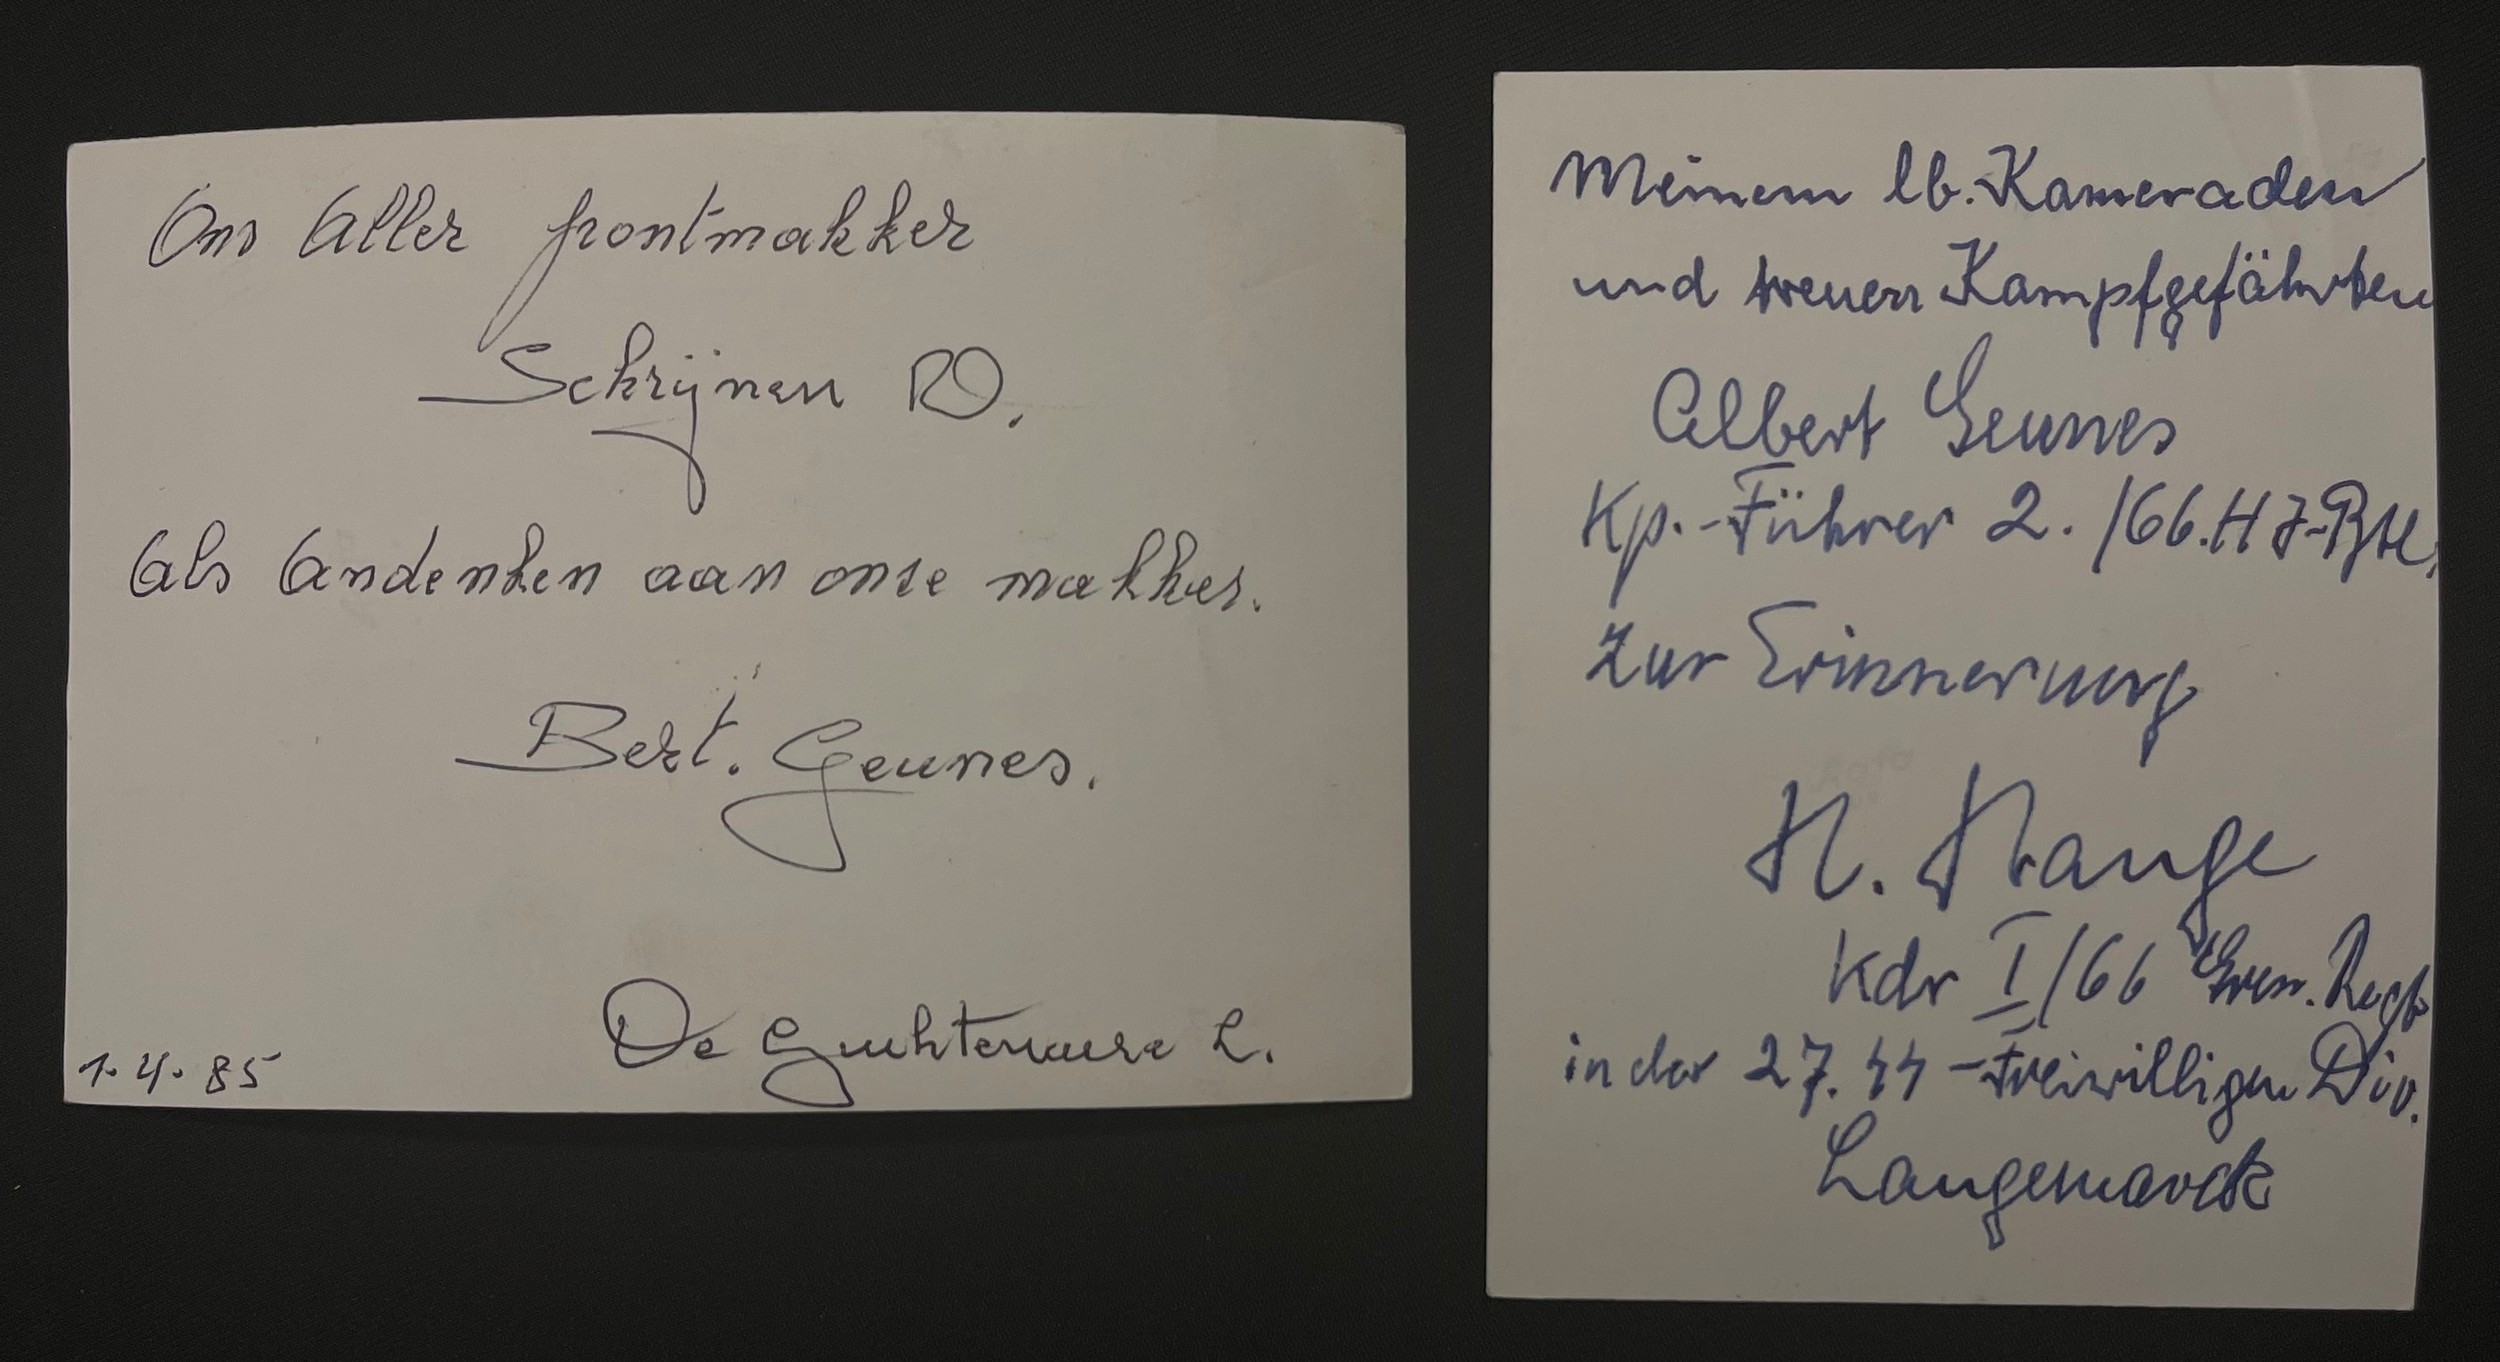 Ons Aller frontmakker
Schrijnen R D.
Als Andenken aan onze makker.
Bert. Geunes.
De Guchtenaere L.
1.4.85
Meinem lb. Kameraden
und treuen Kampfgefährten
Albert Geunes
Kp.-Führer 2./66. HJ-Btl.
zur Erinnerung
H.
Kdr I/66 Gren. Regt
in der 27. SS-Freiwilligen Div.
Langemarck